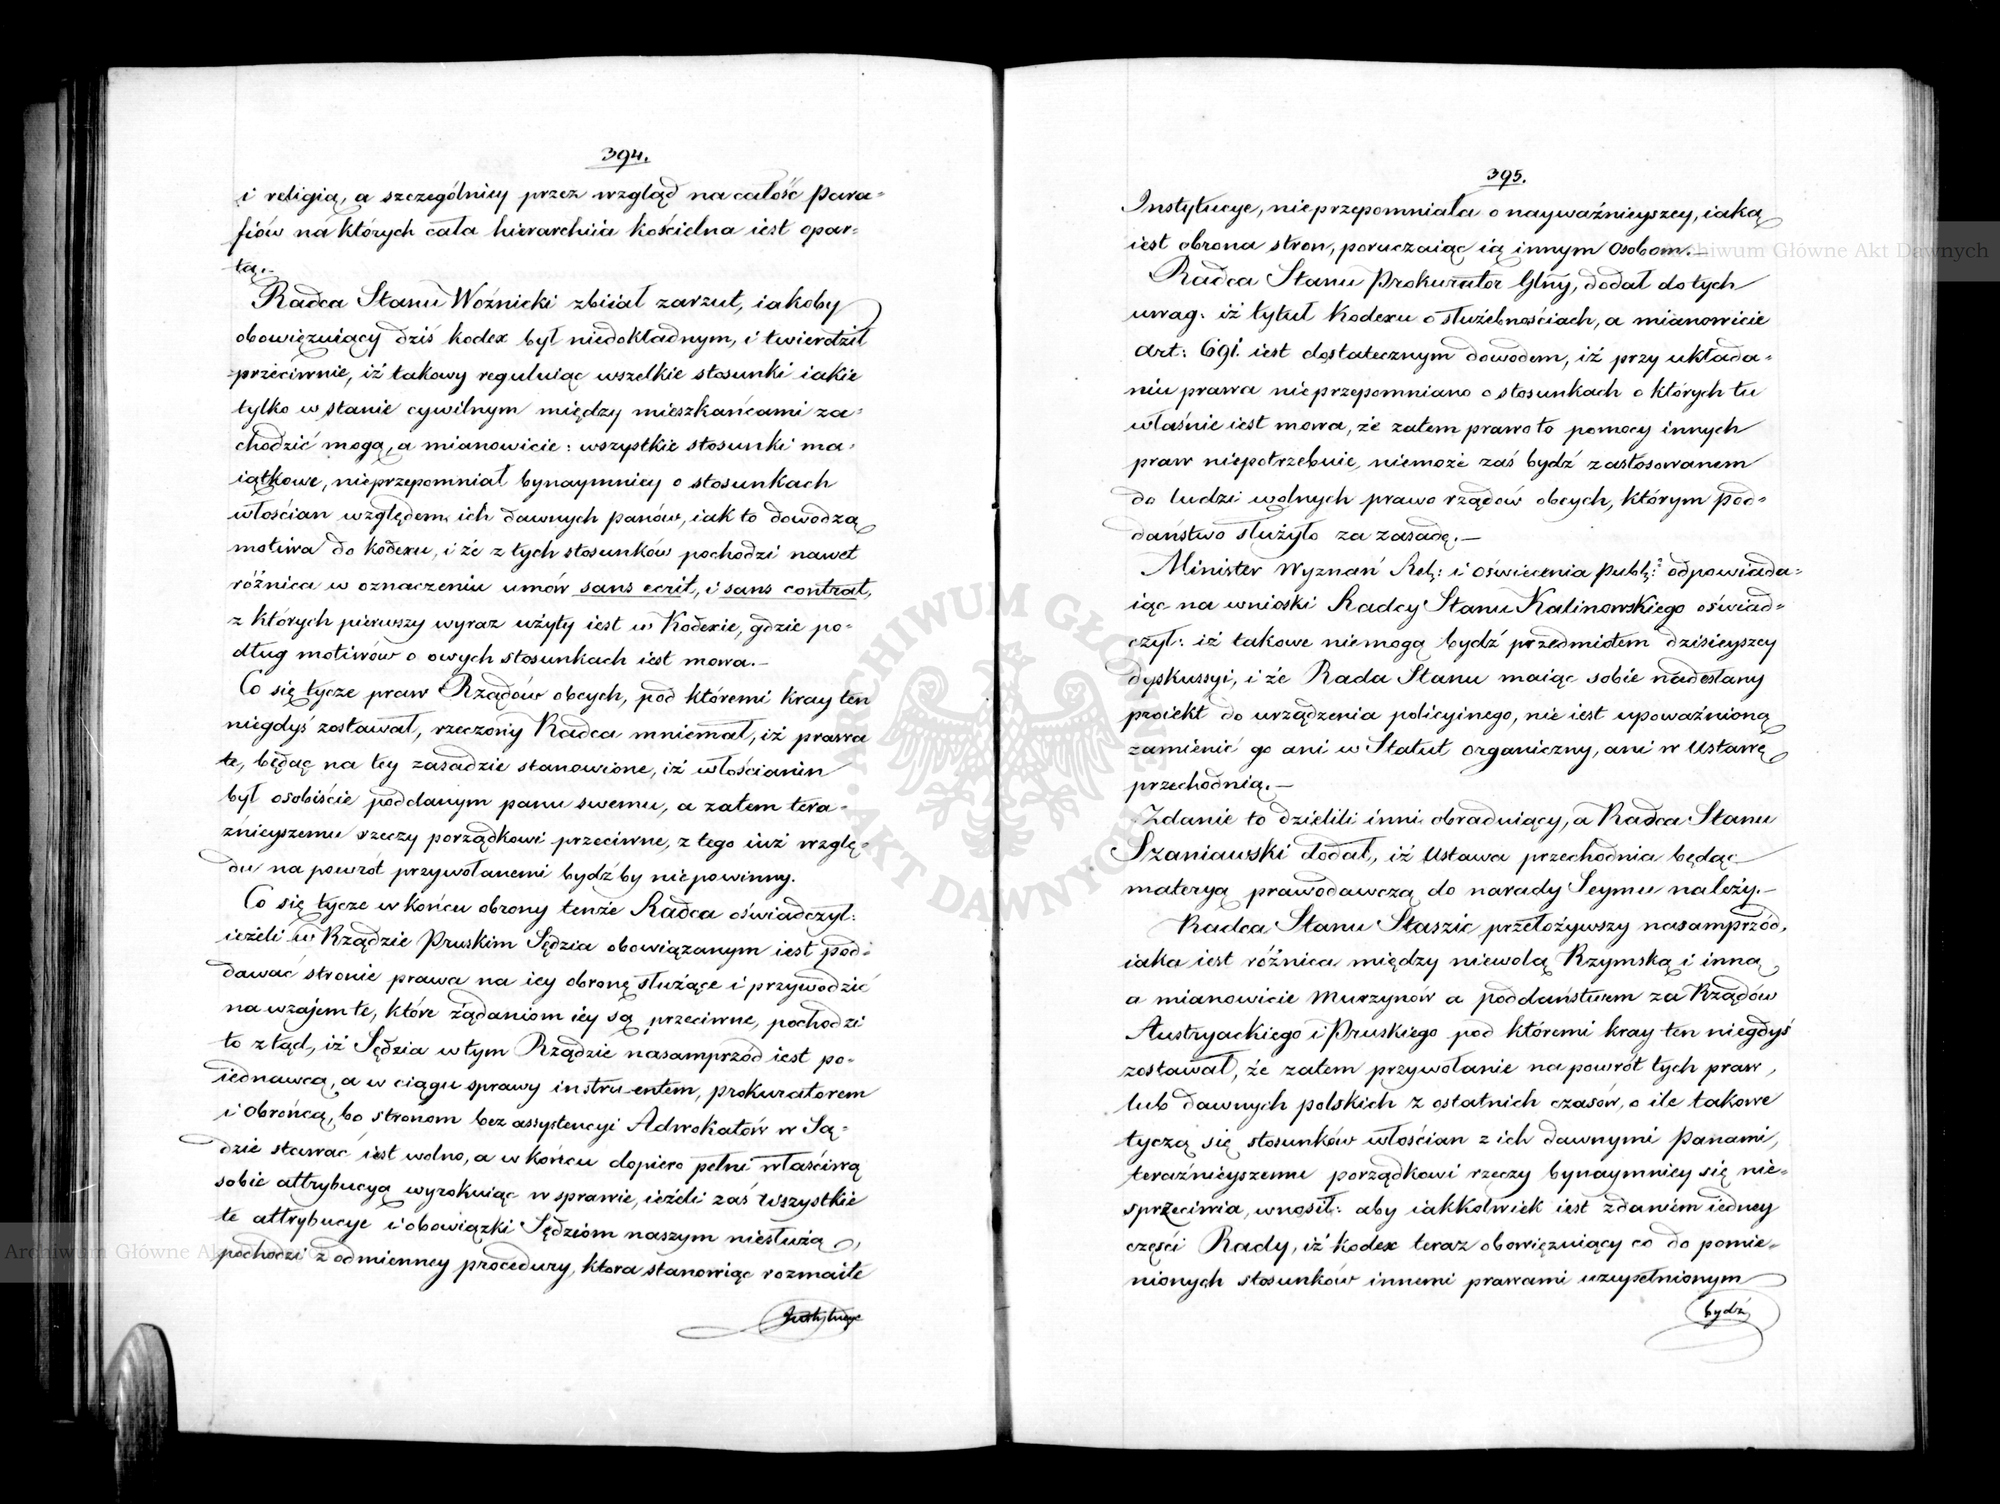 394.
i religią, a szczególniey przez wzgląd na całość para=
fiów na których cała hierarchiia kościelna iest opar=
tą.-
Radca Stanu Woźnicki zbiiał zarzut, iakoby
obowięzuiący dziś kodex był niedokładnym, i twierdził
przeciwnie, iż takowy reguluiąc wszelkie stosunki iakie
tylko w stanie cywilnym między mieszkańcami za=
chodzić mogą, a mianowicie: wszystkie stosunki ma=
iątkowe, nieprzepomniał bynaymniey o stosunkach
włościan względem ich dawnych panów, iak to dowodzą
motiwa do kodexu, i że z tych stosunków pochodzi nawet
różnica w oznaczeniu umów sans ecrit, i sans contrat,
z których pierwszy wyraz użyty iest w Kodexie, gdzie po=
dług motiwów o owych stosunkach iest mowa.-
Co się tycze praw Rządów obcych, pod któremi kray ten
niegdyś zostawał, rzeczony Radca mniemał, iż prawa
te, będąc na tey zasadzie stanowione, iż włościanin
był osobiście poddanym panu swemu, a zatem tera=
źnieyszemu rzeczy porządkowi przeciwne, z tego iuż wzglę=
du na powrót przywołanemi bydź by niepowinny.
Co się tycze w końcu obrony tenże Radca oświadczył:
ieżeli w Rządzie Pruskim Sędzia obowiązanym iest pod=
dawać stronie prawa na iey obronę służące i przywodzić
na wzajem te, które żądaniom iey są przeciwne, pochodzi
to ztąd, iż Sędzia w tym Rządzie nasamprzód iest po=
iednawcą, a w ciągu sprawy instruentem, prokuratorem
i obrońcą, bo stronom bez assystencyi Adwokatów w Są=
dzie stawać iest wolno, a w końcu dopiero pełni właściwą
sobie attrybucyą wyrokuiąc w sprawie, ieżeli zaś wszystkie
te attrybucye i obowiązki Sędziom naszym niesłużą,
pochodzi z odmienney procedury, która stanowiąc rozmaite
Instytucye
395.
Instytucye, nieprzepomniała o nayważnieyszey, iaką
iest obrona stron, poruczaiąc ią innym Osobom.-
Radca Stanu Prokurator Glny, dodał do tych
uwag: iż tytuł Kodexu o służebnościach, a mianowicie
art: 691. iest dostatecznym dowodem, iż przy układa=
niu prawa nieprzepomniano o stosunkach o których tu
właśnie iest mowa, że zatem prawo to pomocy innych
praw niepotrzebuie, niemoże zaś bydź zastosowanem
do ludzi wolnych prawo rządów obcych, którym pod=
daństwo służyło za zasadę.-
Minister Wyznań Rel: i Oświecenia Publ: odpowiada=
iąc na wnioski Radcy Stanu Kalinowskiego oświad=
czył: iż takowe niemogą bydź przedmiotem dzisieyszey
dyskussyi, i że Rada Stanu maiąc sobie nadesłany
proiekt do urządzenia policyinego, nie iest upoważnioną
zamienić go ani w Statut organiczny, ani w Ustawę
przechodnią.-
Zdanie to dzielili inni obraduiący, a Radca Stanu
Szaniawski dodał, iż Ustawa przechodnia będąc
materyą prawodawczą do narady Seymu należy.-
Radca Stanu Staszic przełożywszy nasamprzód,
iaka iest różnica między niewolą Rzymską i inną
a mianowicie Murzynów a poddaństwem za Rządów
Austryackiego i Pruskiego pod któremi kray ten niegdyś
zostawał, że zatem przywołanie na powrót tych praw,
lub dawnych polskich z ostatnich czasów, o ile takowe
tyczą się stosunków włościan z ich dawnymi Panami,
teraźnieyszemu porządkowi rzeczy bynaymniey się nie=
sprzeciwia, wnosił: aby iakkolwiek iest zdaniem iedney
części Rady, iż kodex teraz obowięzuiący co do pomie=
nionych stosunków innemi prawami uzupełnionym
bydź
ARCHIWUM GŁÓWNE AKT DAWNYCH
Archiwum Główne Akt Dawnych
Archiwum Główne Akt Dawnych